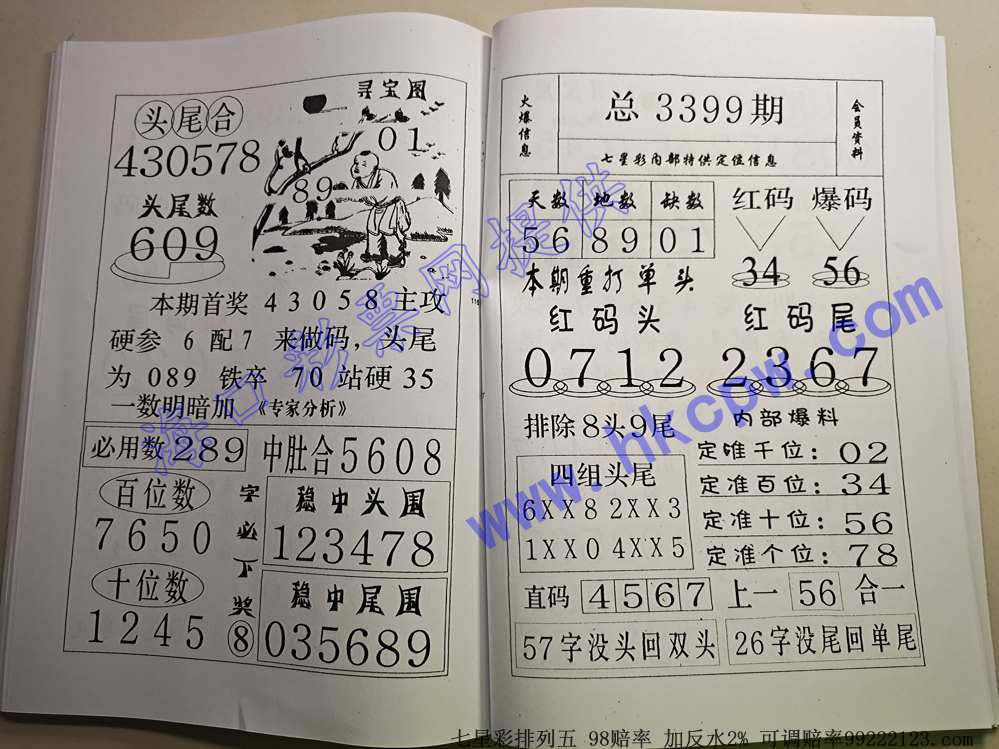 头尾合
430578
头尾数
609
寻宝图
01
89
本期首奖 43058 主攻
硬参 6 配 7 来做码，头尾
为 089 铁卒 70 站硬 35
一数明暗加 《专家分析》
必用数 289
中肚合 5608
百位数
7650
十位数
1245
字必下奖
8
稳中头围
123478
稳中尾围
035689
116
火爆信息
总 3399 期
会员资料
七星彩内部特供定位信息
天数 地数 缺数
56 89 01
红码 爆码
34 56
本期重打单头
红码头 红码尾
0712 2367
排除8头9尾
内部爆料
四组头尾
6XX8 2XX3
1XX0 4XX5
定准千位：02
定准百位：34
定准十位：56
定准个位：78
直码 4567 上一 56 合一
57字没头回双头
26字没尾回单尾
海口彩票网提供
www.hkcpw.com
七星彩排列五 98赔率 加反水2% 可调赔率99222123.com